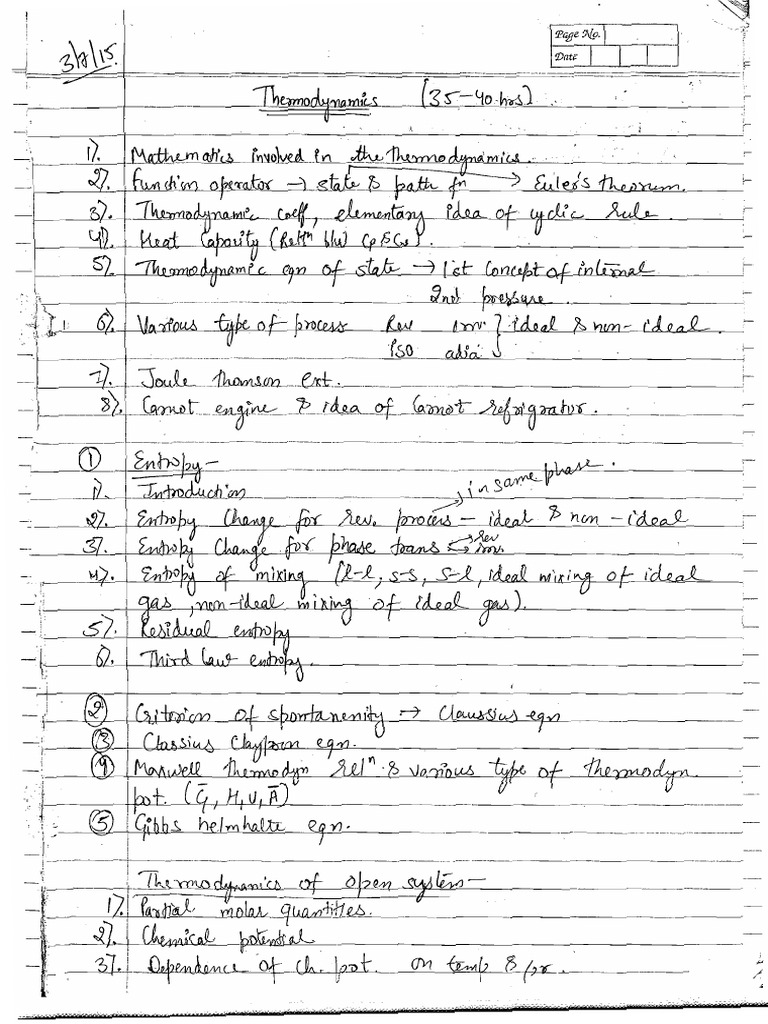 Page No.
Date
3/7/15.
Thermodynamics (35-40 hrs)
1). Mathematics involved in the Thermodynamics.
2). function operator → state & path fn → Euler's theorum.
3). Thermodynamic coeff, elementary idea of cyclic rule.
4). Heat Capacity (Relⁿ b/w) Cp & Cv).
5). Thermodynamic eqn of state → 1st concept of internal
2nd pressure.
6). Various type of process Rev irrv. } ideal & non-ideal.
iso adia
7). Joule Thomson ext.
8). Carnot engine & idea of Carnot refrigrator.
① Entropy -
1). Introduction
in same phase.
2). Entropy Change for rev. process - ideal & non-ideal
3). Entropy Change for phase trans rev irrv.
4). Entropy of mixing (l-l, s-s, s-l, ideal mixing of ideal
gas, non-ideal mixing of ideal gas).
5). Residual entropy
6). Third law entropy.
② Criterion of spontanenity → Claussius eqn
③ Classius Claypron eqn.
④ Maxwell thermodyn relⁿ & various type of thermodyn.
pot. (G̅, H, U, A̅)
⑤ Gibbs helmhalte eqn.
Thermodynamics of open system-
1). Partial molar quantities.
2). Chemical potential
3). Dependence of ch. pot. on temp & pr.